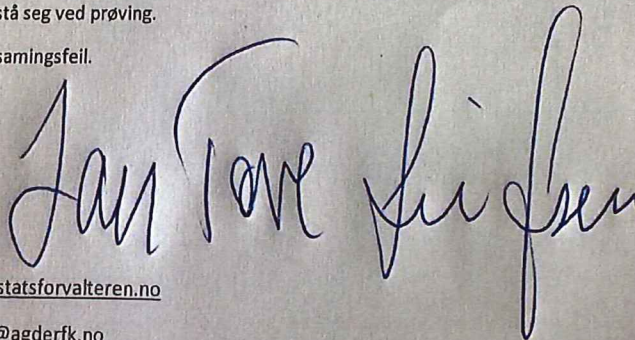 stå seg ved prøving.
samingsfeil.
Jan Tore
statsforvalteren.no
@agderfk.no